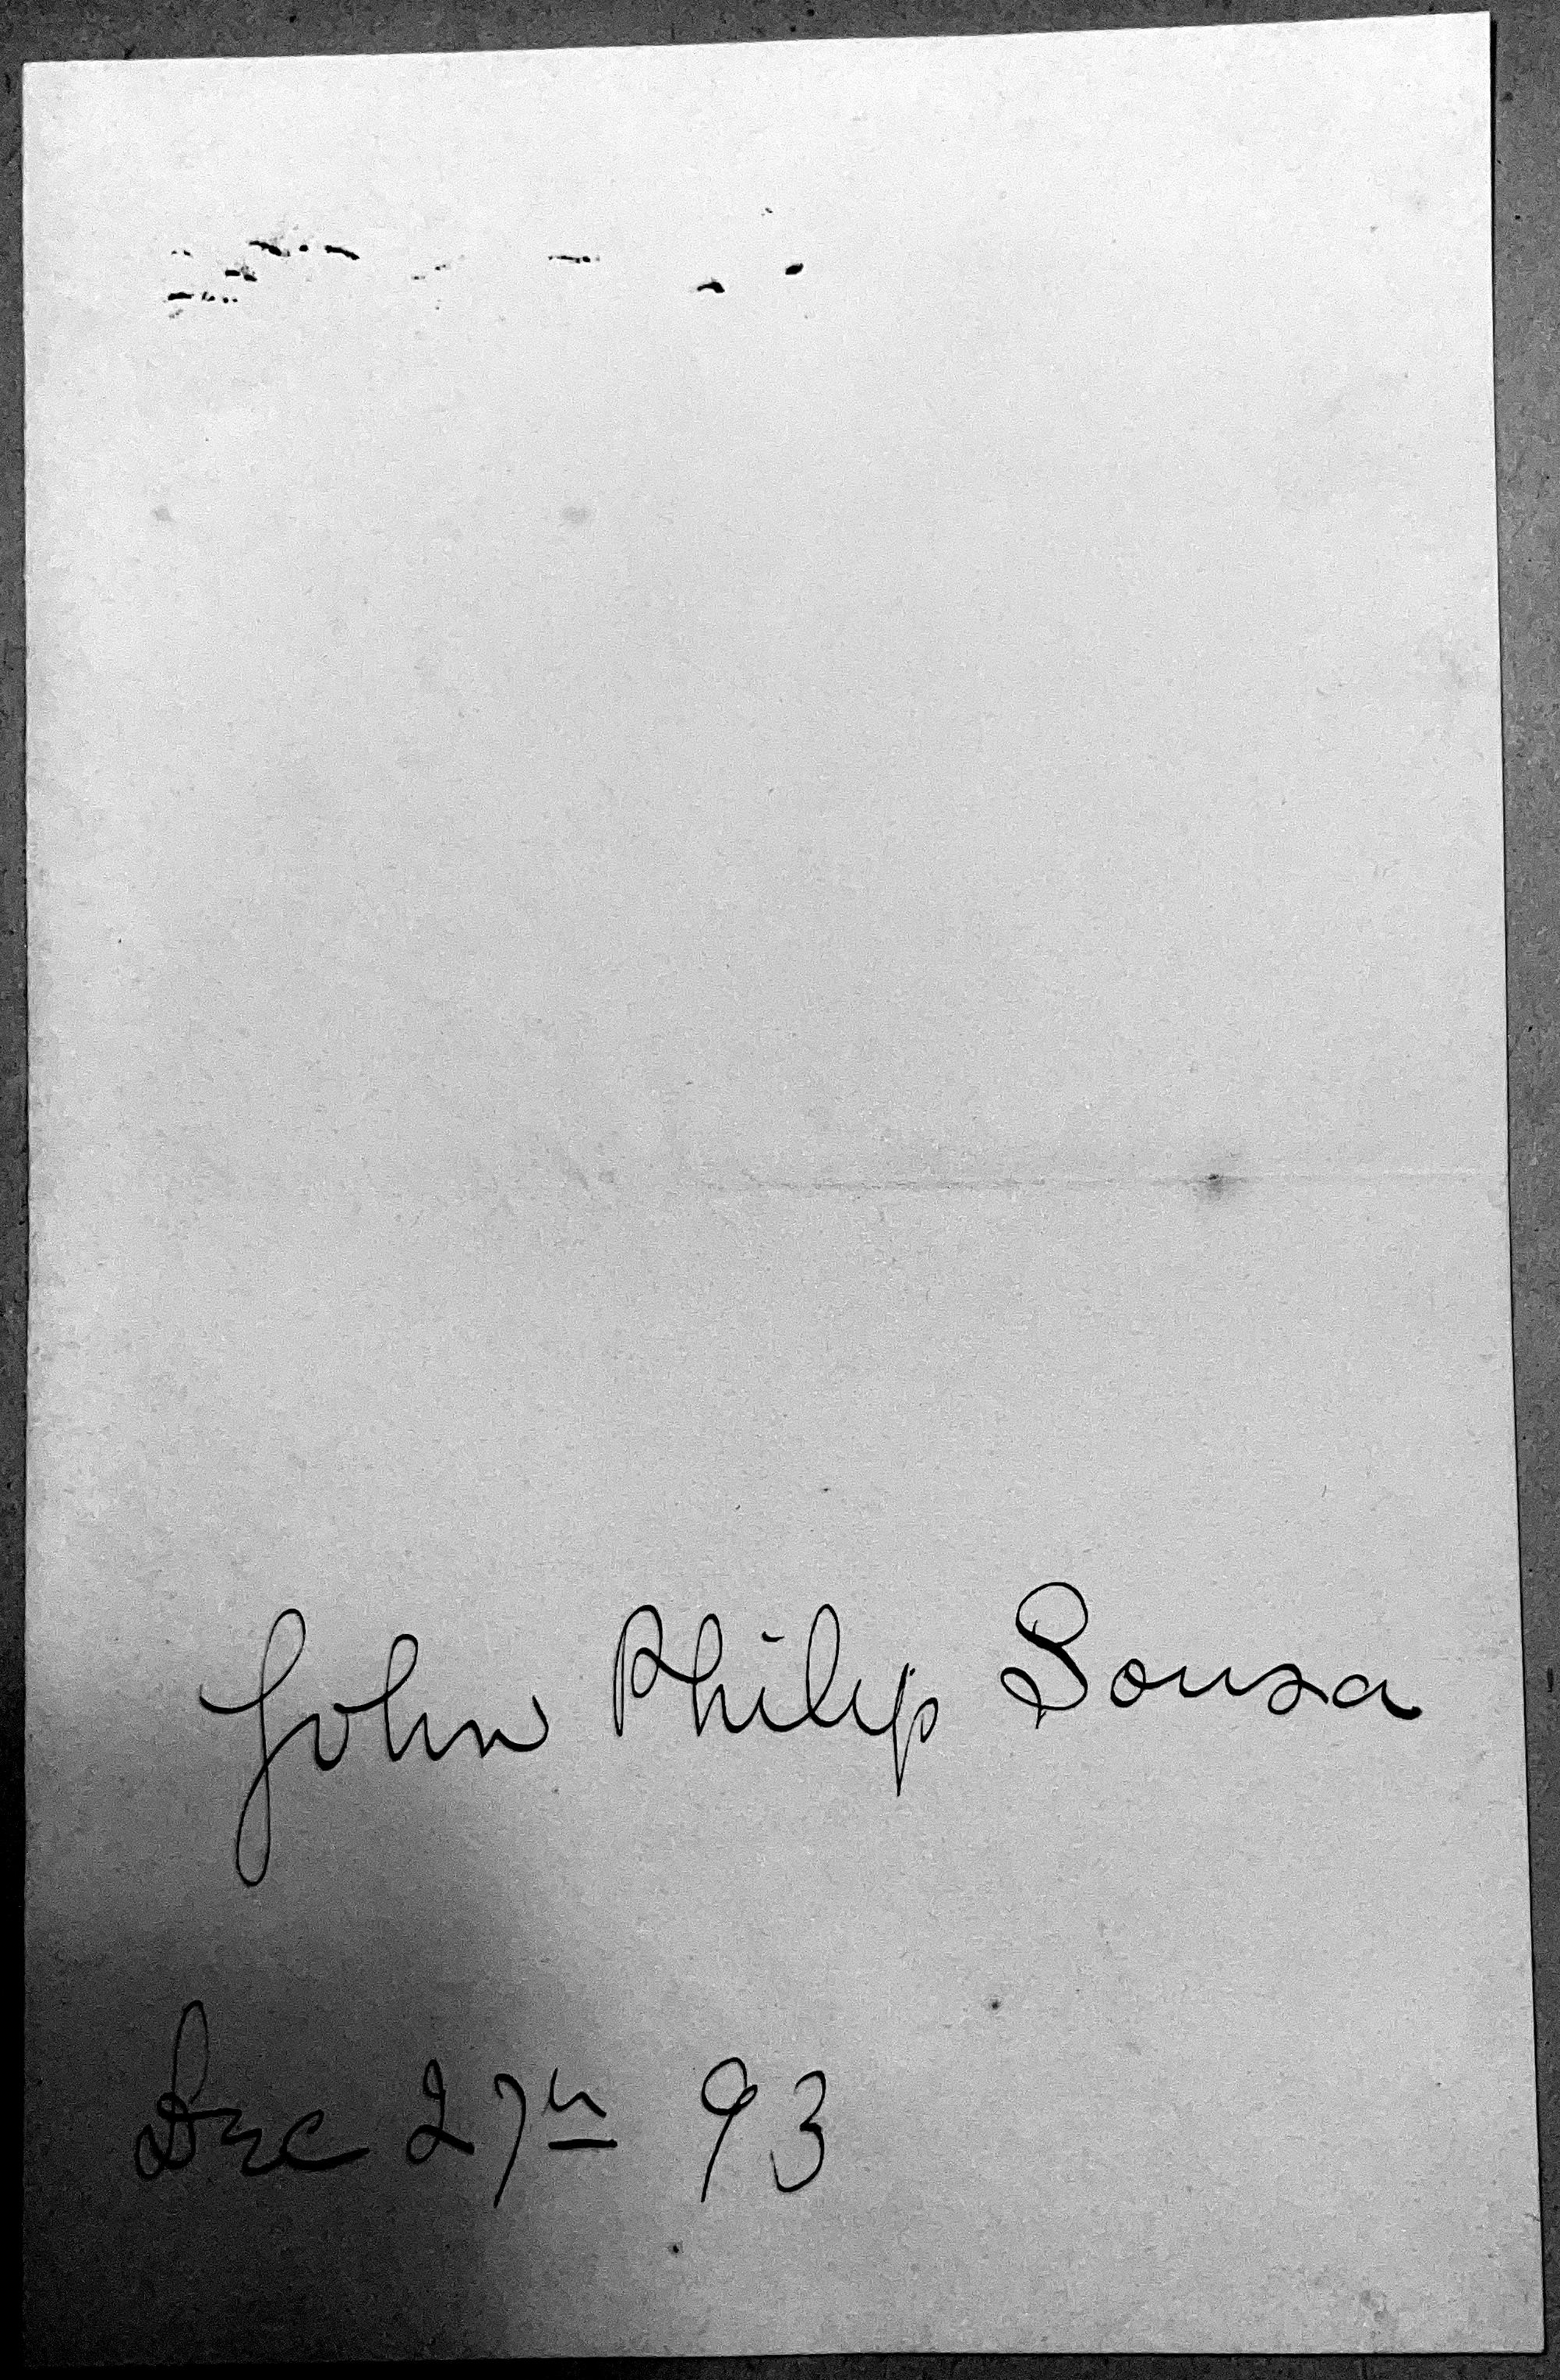 John Philip Sousa
Dec 27th 93